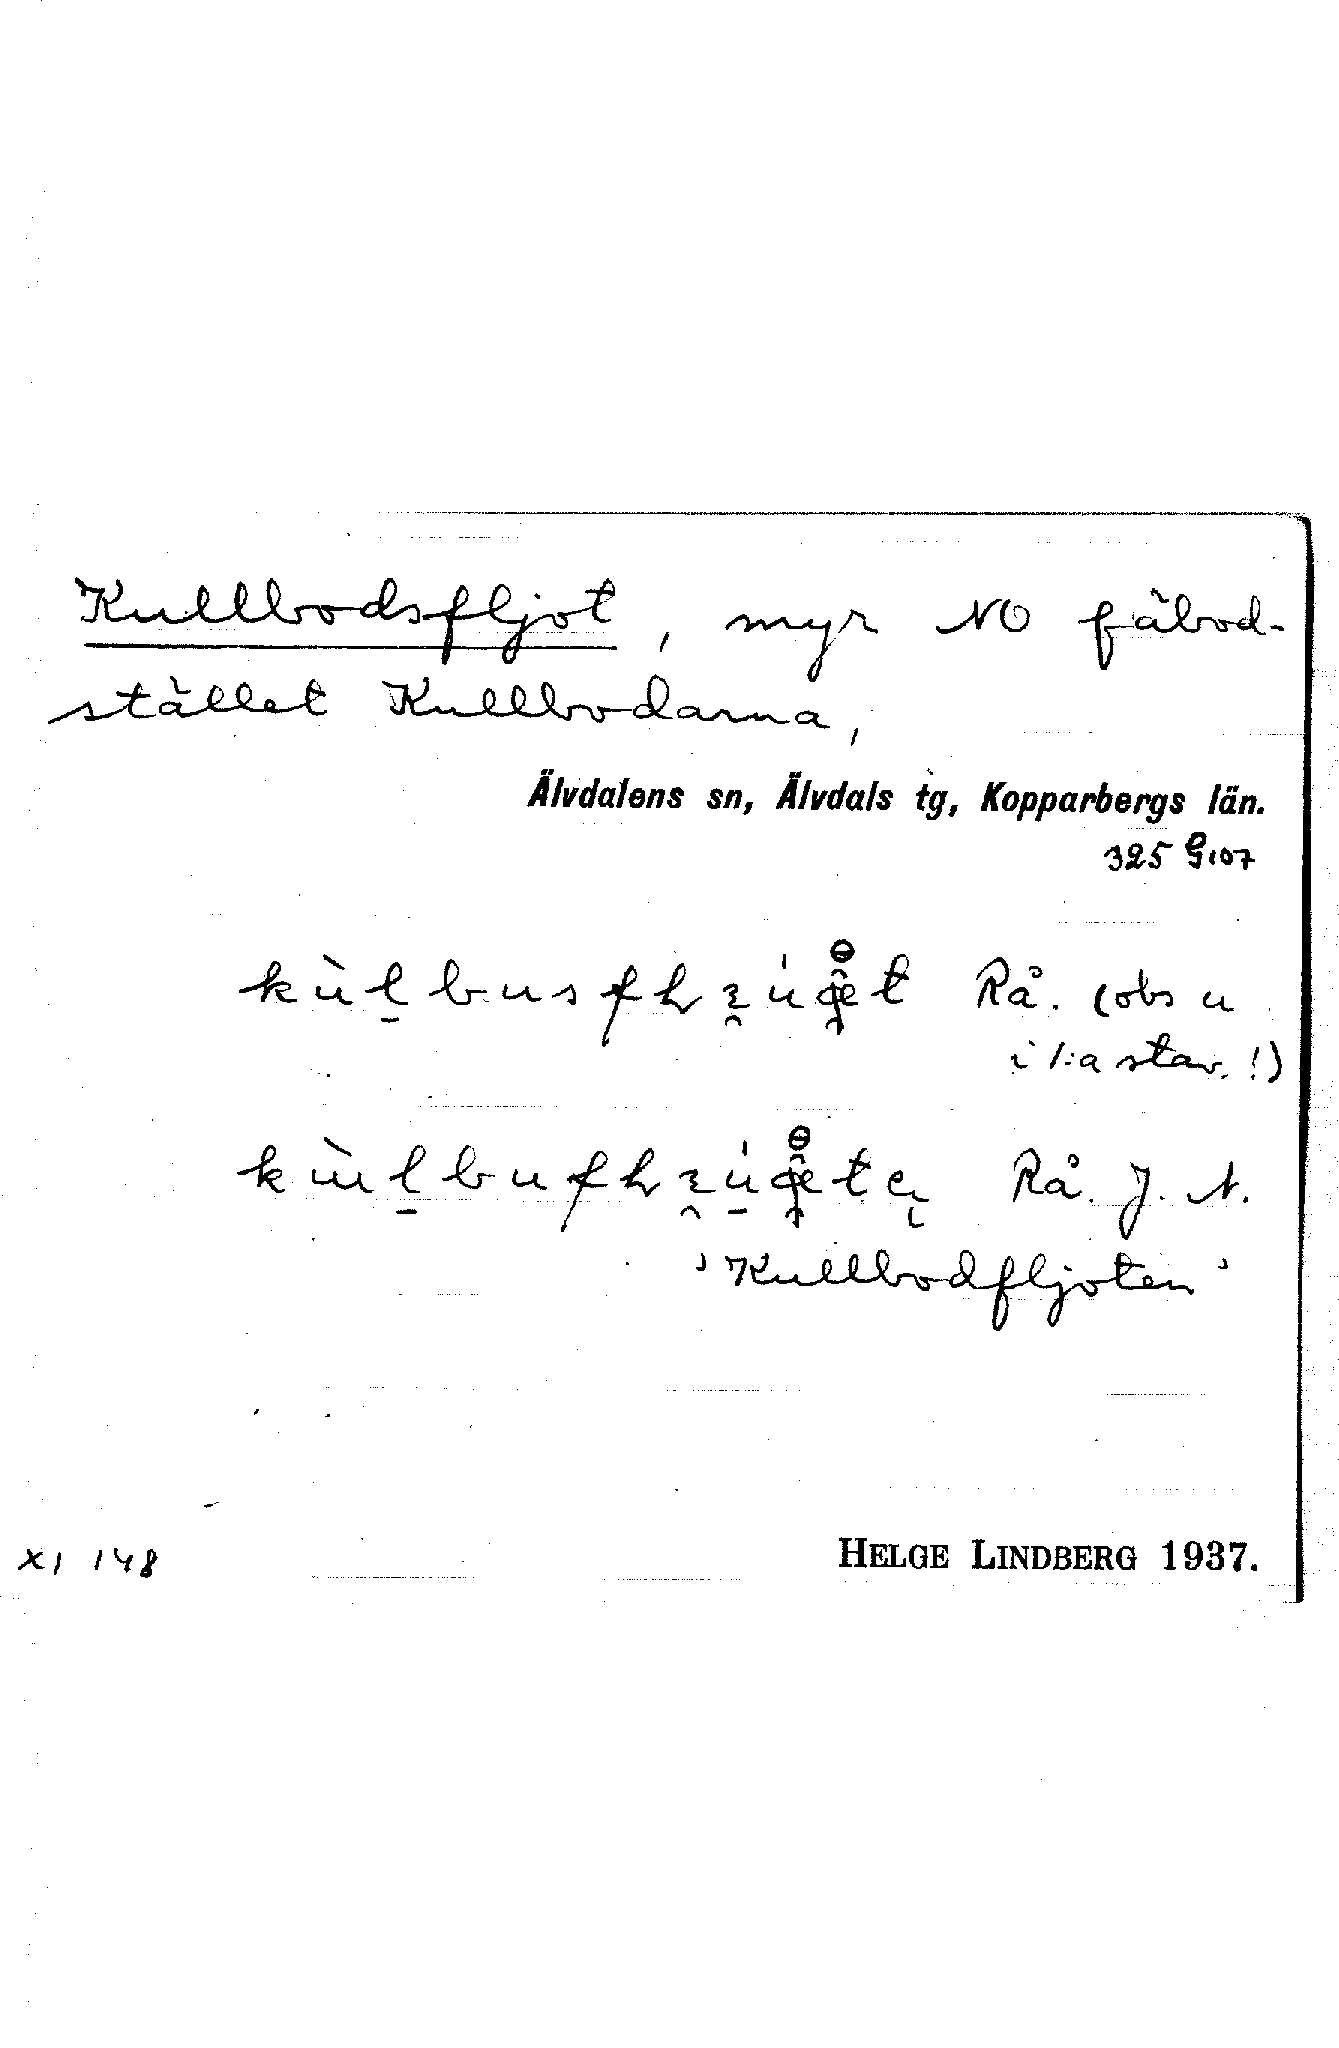 Kullbodsfljot, myr NO fäbod-
stället Kullbodarna,
Älvdalens sn, Älvdals tg, Kopparbergs län.
325 G107
Rå. (obs u
i 1:a stav.!)
Rå. J. N.
'Kullbodfljoten'
XI 148
HELGE LINDBERG 1937.